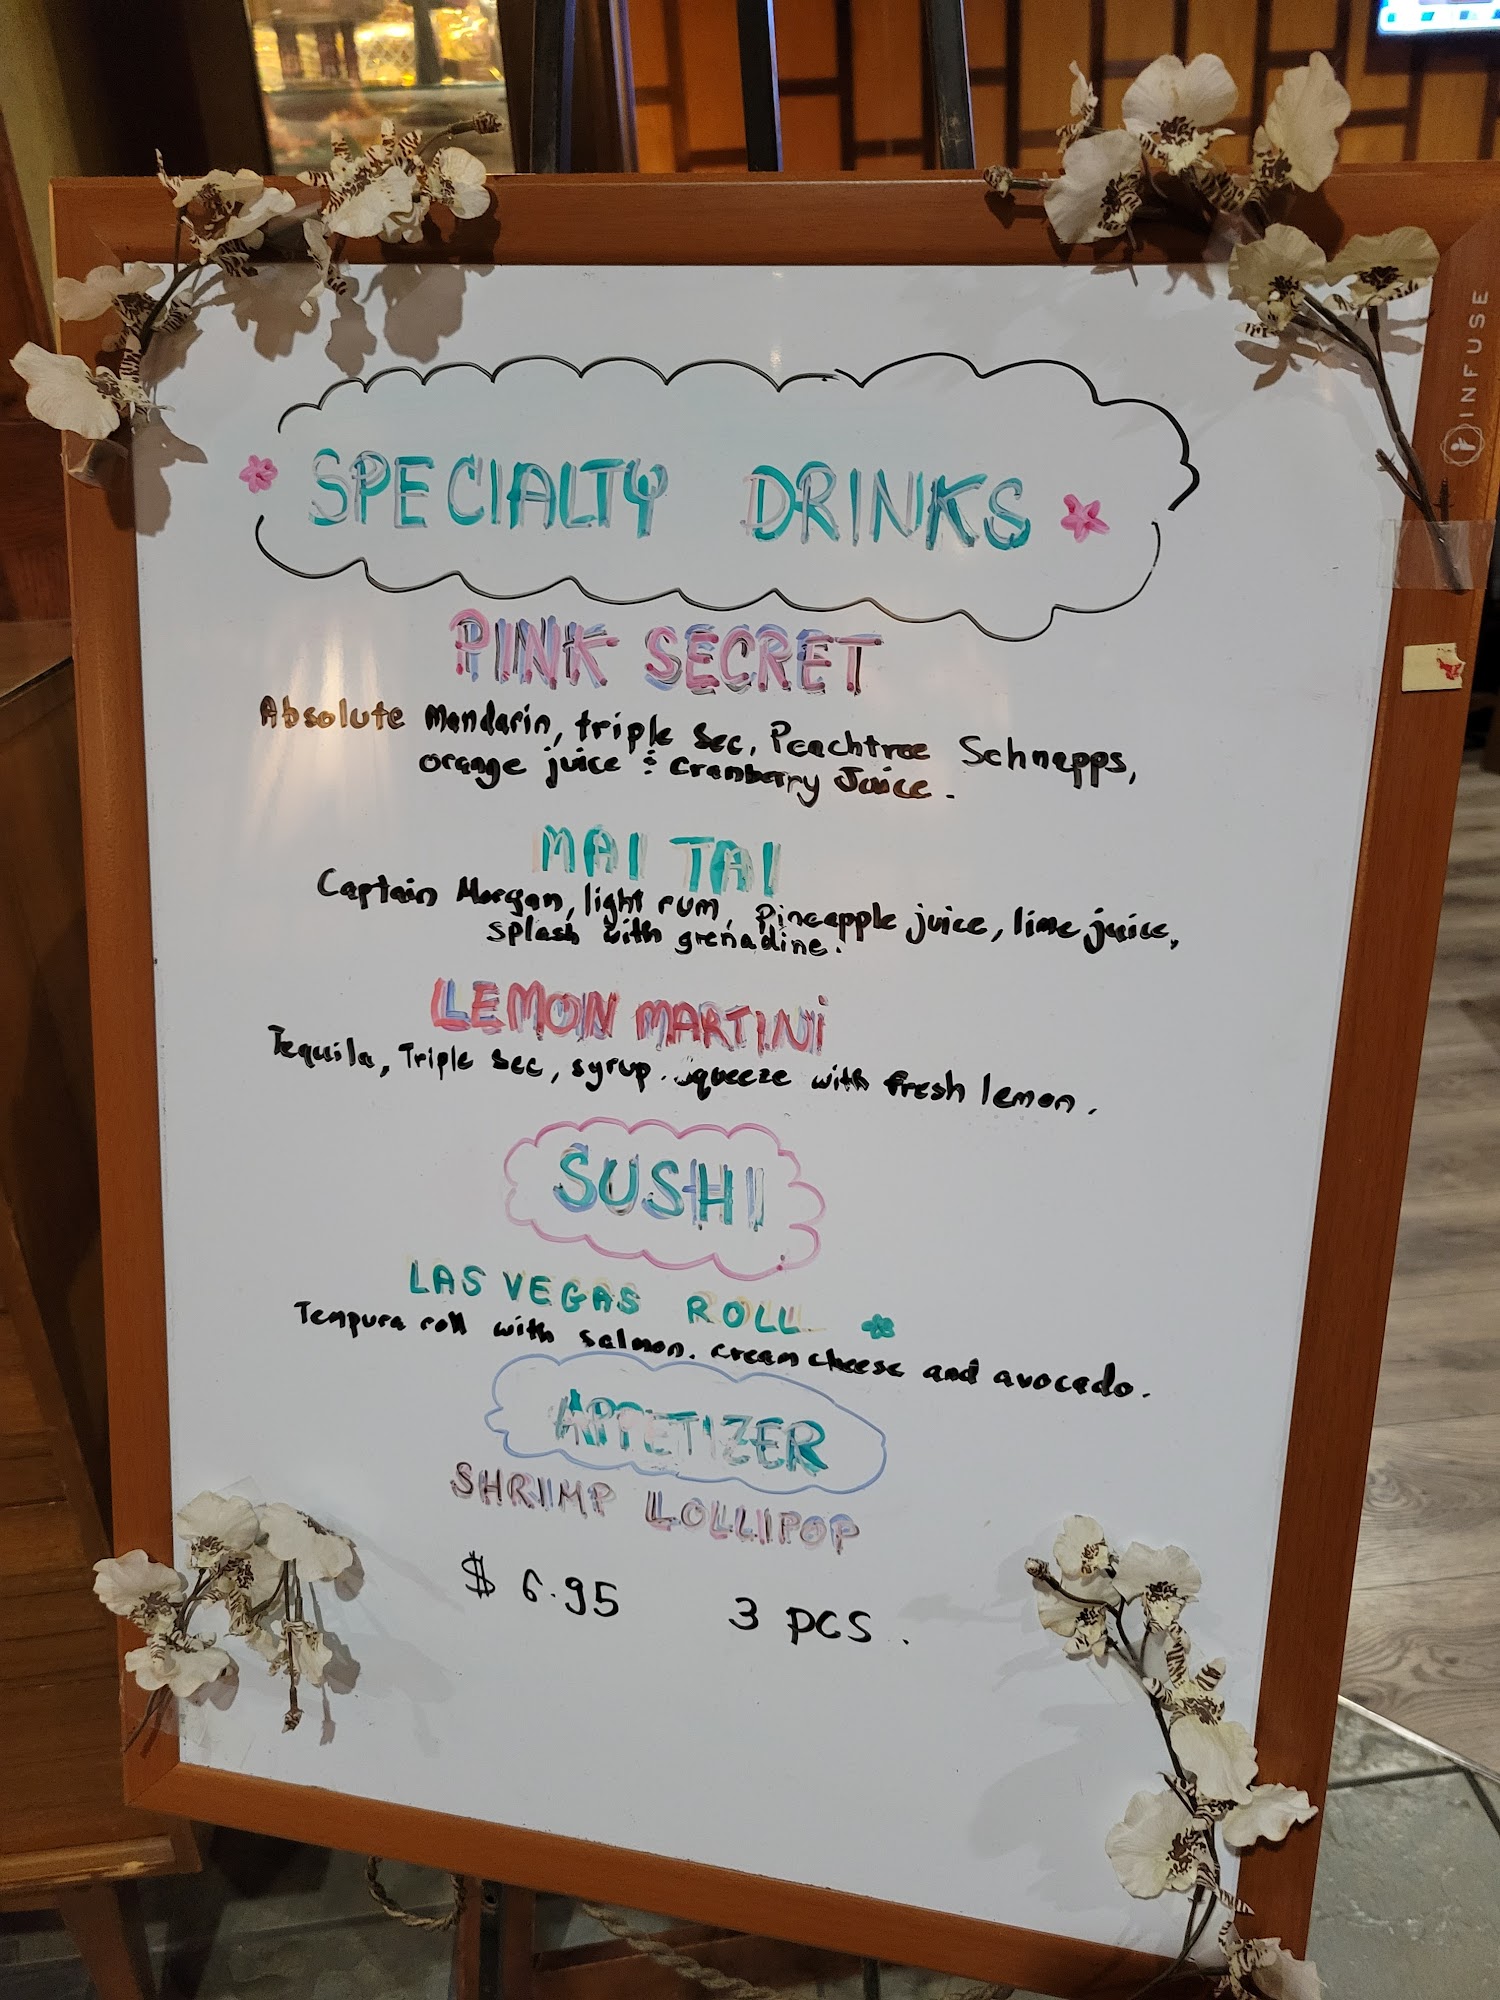 SPECIALTY DRINKS
PINK SECRET
Absolute Mandarin, triple sec, Peachtree Schnapps,
orange juice & Cranberry Juice.
MAI TAI
Captain Morgan, light rum, pineapple juice, lime juice,
splash with grenadine.
LEMON MARTINi
Tequila, Triple Sec, syrup. squeeze with fresh lemon.
SUSHI
LAS VEGAS ROLL
Tempura roll with salmon. cream cheese and avocado.
APPETIZER
SHRIMP LOLLIPOP
$ 6.95 3 PCS.
INFUSE